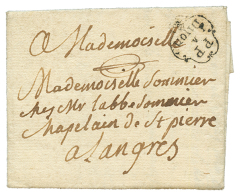 a Mademoiselle
Mademoiselle Sommier
chez Mr labbe Sommier
chapelain de St pierre
a Langres